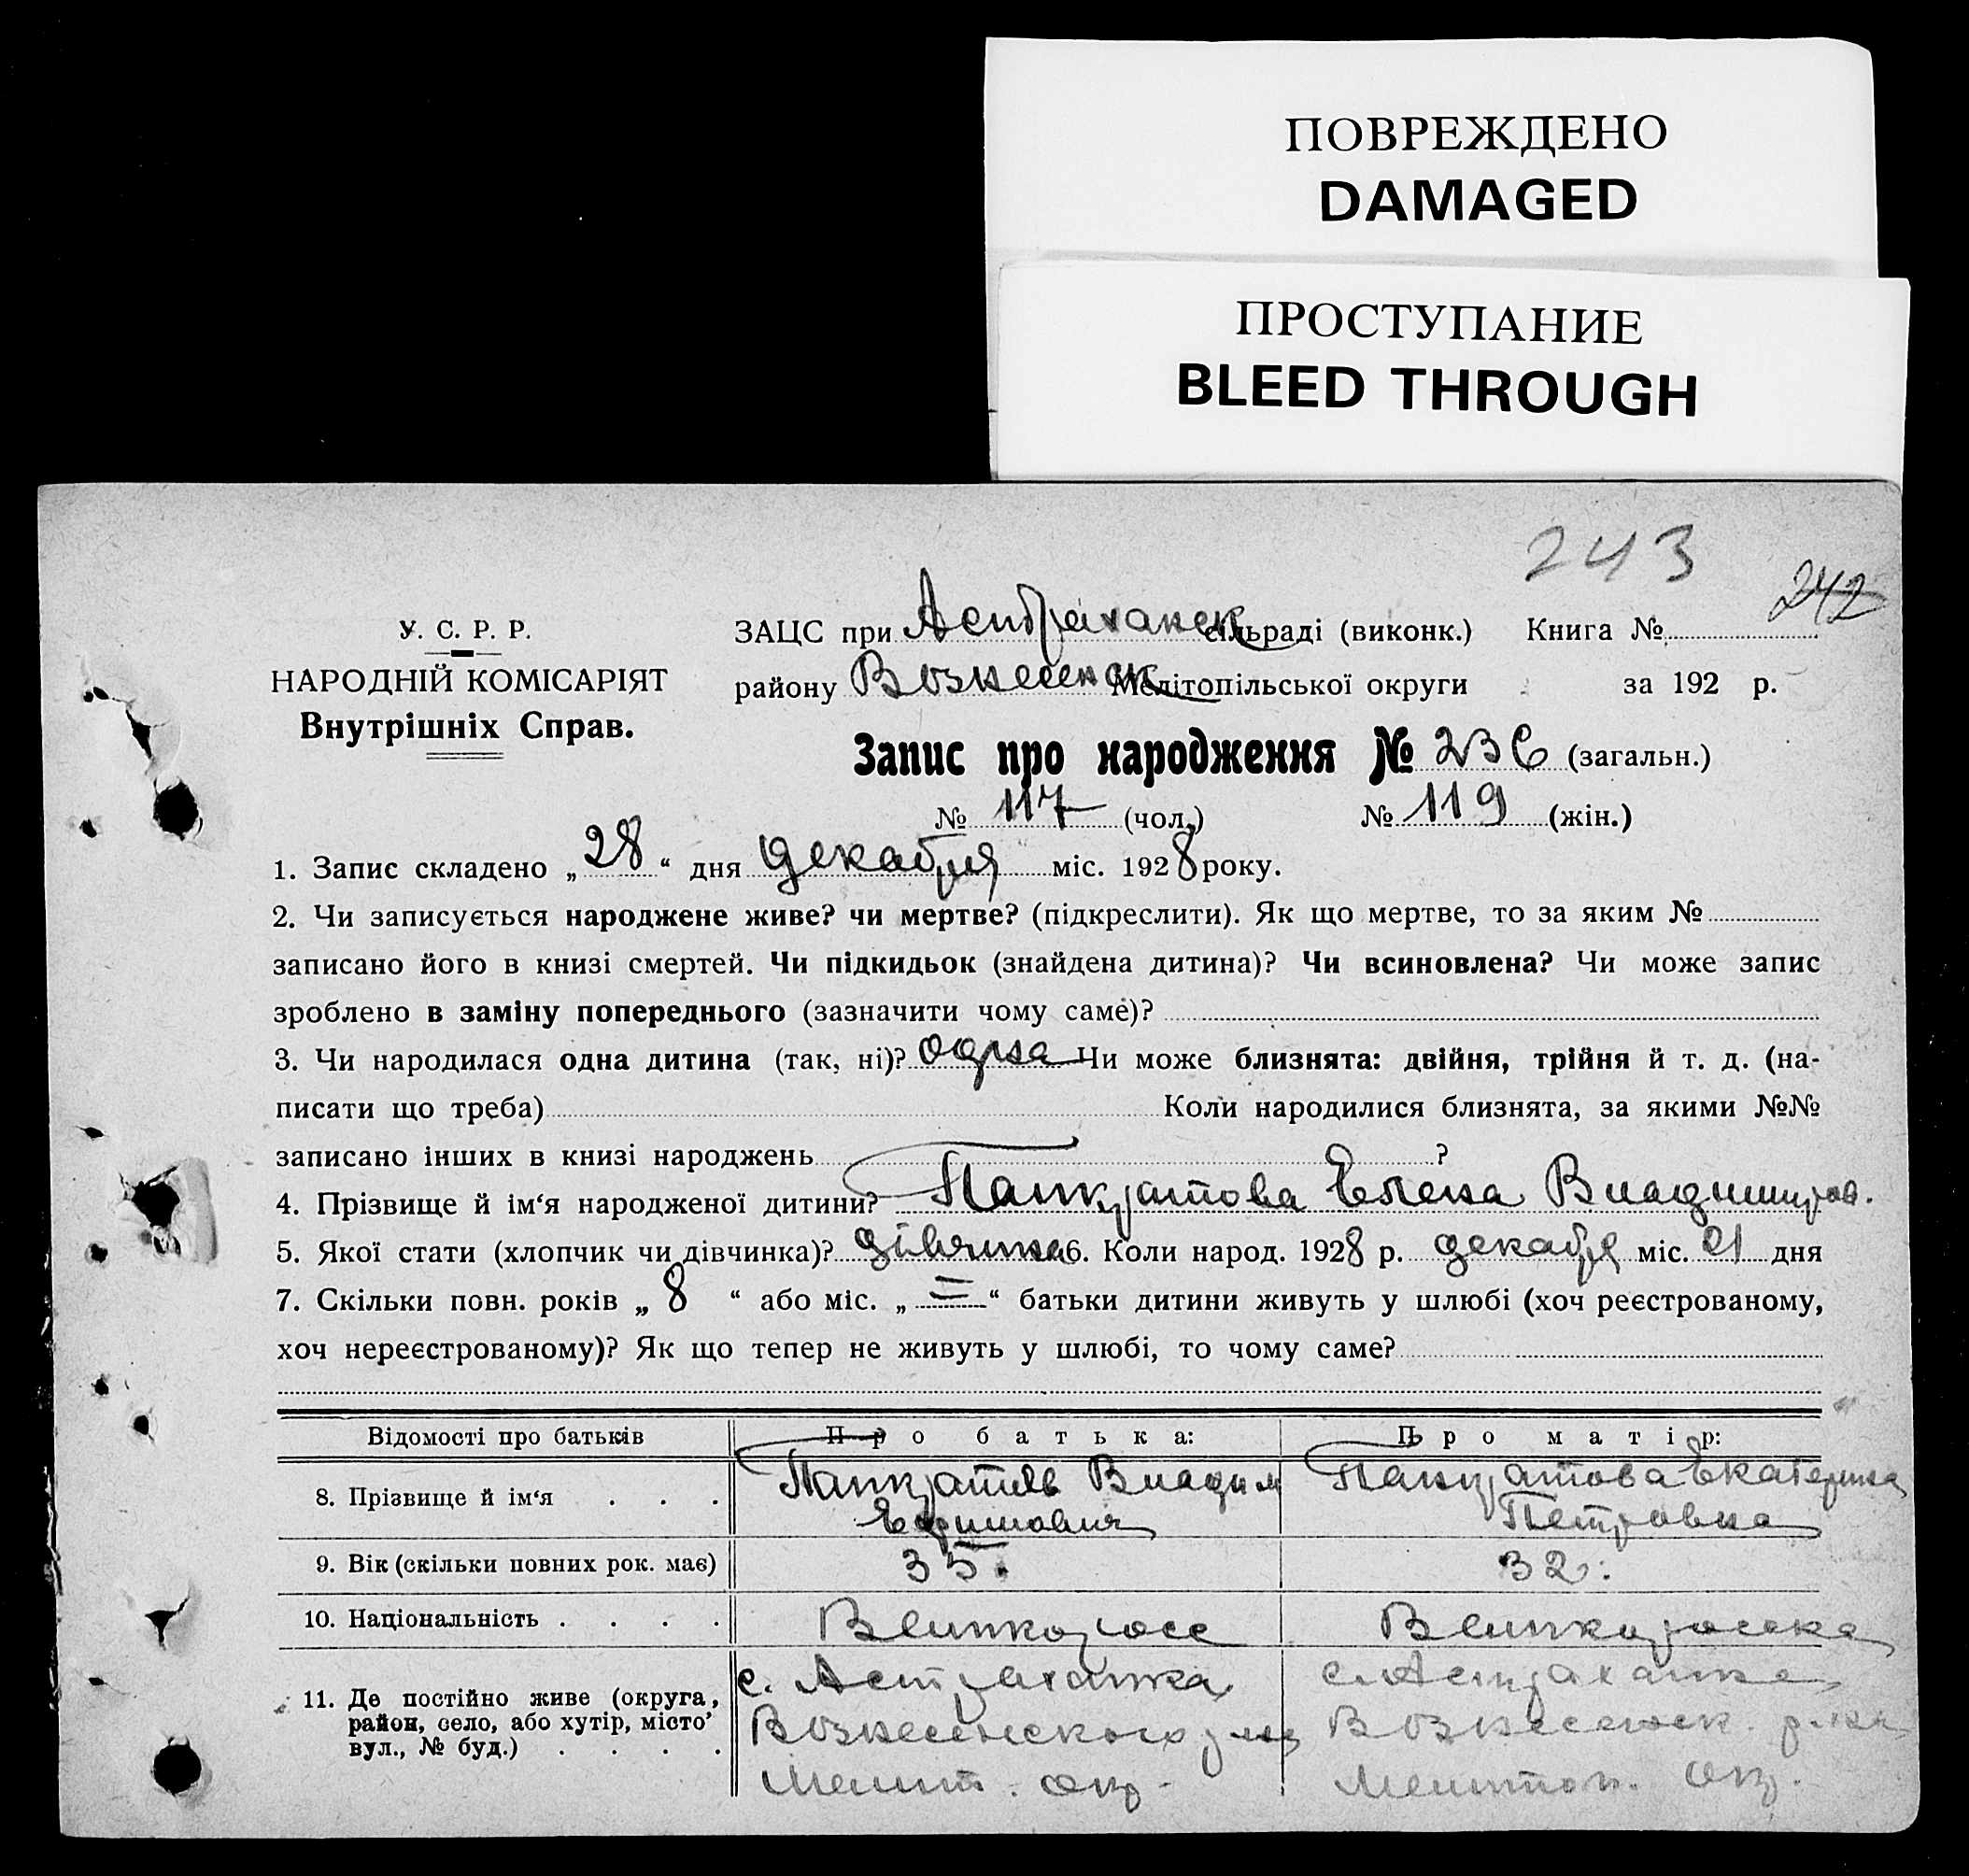 ПОВРЕЖДЕНО
DAMAGED
ПРОСТУПАНИЕ
BLEED THROUGH
243
242
У. С. Р. Р.
НАРОДНІЙ КОМІСАРІЯТ
Внутрішніх Справ.
ЗАЦС при Астраханск сільраді (виконк.) Книга №
району Вознесенск Мелітопільської округи за 192 р.
Запис про народження № 236 (загальн.)
№ 117 (чол.) № 119 (жін.)
1. Запис складено „28“ дня декабря міс. 1928 року.
2. Чи записується народжене живе? чи мертве? (підкреслити). Як що мертве, то за яким №
записано його в книзі смертей. Чи підкидьок (знайдена дитина)? Чи всиновлена? Чи може запис
зроблено в заміну попереднього (зазначити чому саме)?
3. Чи народилася одна дитина (так, ні)? одна Чи може близнята: двійня, трійня й т. д. (на-
писати що треба) Коли народилися близнята, за якими №№
записано інших в книзі народжень ?
4. Прізвище й ім‘я народженої дитини? Панкратова Елена Владимиров.
5. Якої стати (хлопчик чи дівчинка)? дівчинка 6. Коли народ. 1928 р. декабря міс. 21 дня
7. Скільки повн. років „8“ або міс. „=“ батьки дитини живуть у шлюбі (хоч реєстрованому,
хоч нереєстрованому)? Як що тепер не живуть у шлюбі, то чому саме?
Відомості про батьків Про батька: Про матір:
8. Прізвище й ім‘я . . . Панкратов Владим Панкратова Екатерина
Ефимович Петровна
9. Вік (скільки повних рок. має) 35. 32.
10. Національність . . . . Великоросс Великоросска
11. Де постійно живе (округа, с. Астраханка с. Астраханка
район, село, або хутір, місто’ Вознесенского р-на Вознесенск. р-на
вул., № буд.) . . . . Мелит. окр. Мелитоп. окр.